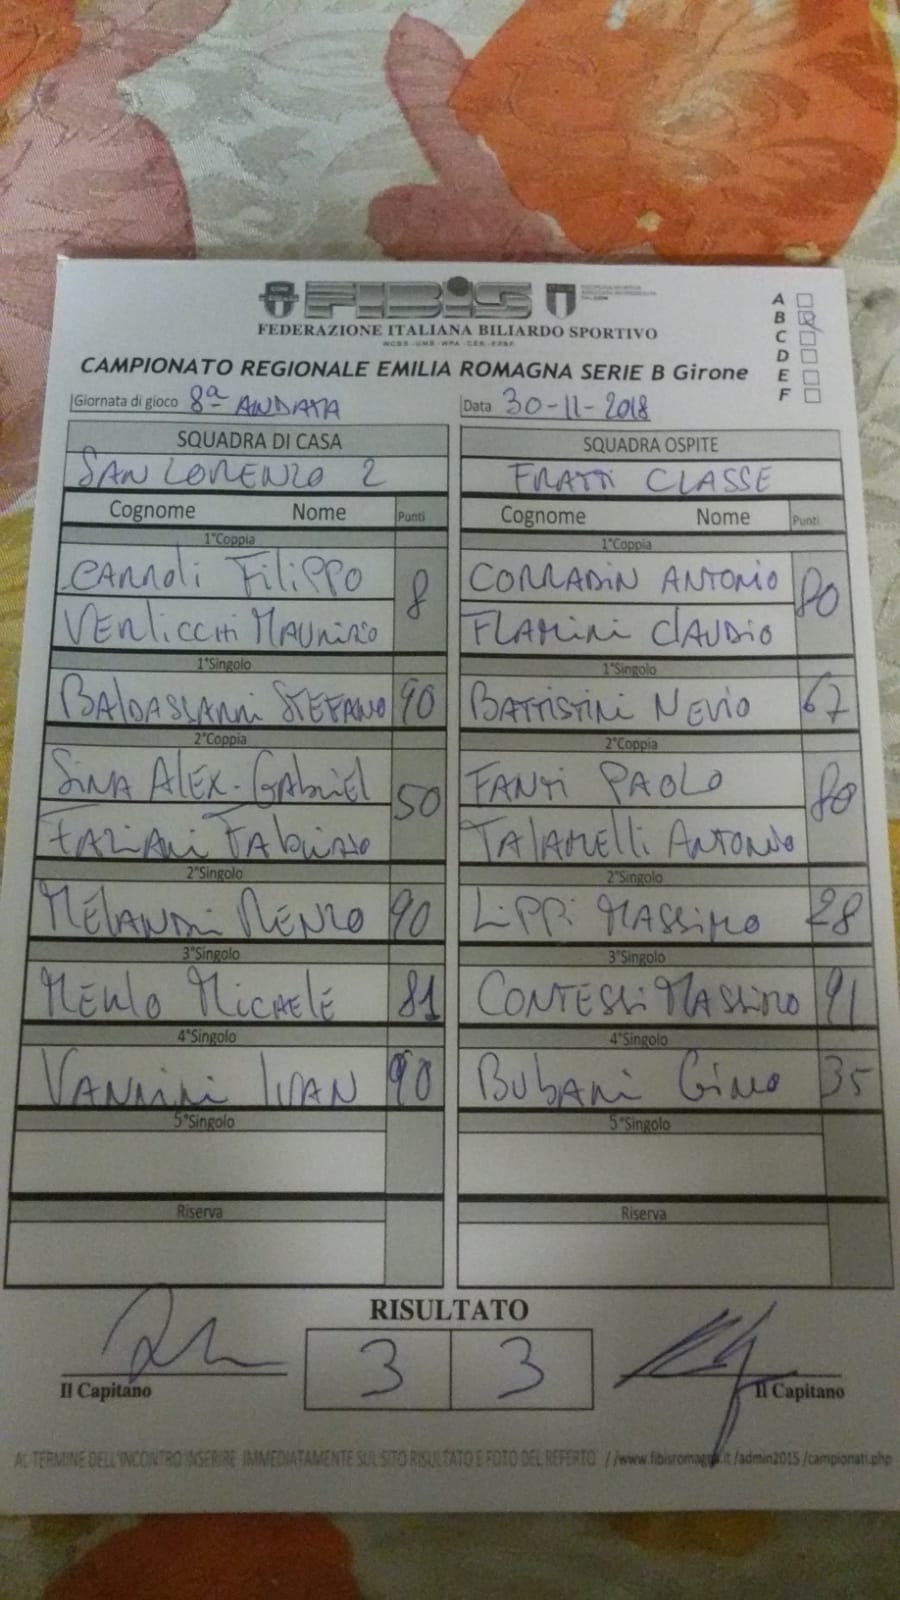 FIBIS
FEDERAZIONE ITALIANA BILIARDO SPORTIVO
WCBS - UMB - WPA - CEB - EPBF
CAMPIONATO REGIONALE EMILIA ROMAGNA SERIE B Girone
A
B
C
D
E
F
Giornata di gioco 8a ANDATA Data 30-11-2018
SQUADRA DI CASA SQUADRA OSPITE
SAN LORENZO 2 FRATTI CLASSE
Cognome Nome Punti Cognome Nome Punti
1°Coppia 1°Coppia
CARROLI FILIPPO 8 CORRADIN ANTONIO 80
VERLICCHI MAURIZIO FLAMINI CLAUDIO
1°Singolo 1°Singolo
BALDASSARRI STEFANO 90 BATTISTINI NEVIO 67
2°Coppia 2°Coppia
SINA ALEX-GABRIEL 50 FANTI PAOLO 80
FAZIANI FABRIZIO TALAMELLI ANTONIO
2°Singolo 2°Singolo
MELANDRI RENZO 90 LIPPI MASSIMO 28
3°Singolo 3°Singolo
MERLO MICAELE 81 CONTESSI MASSIMO 91
4°Singolo 4°Singolo
VANNINI IVAN 90 BUBANI GINO 35
5°Singolo 5°Singolo
Riserva Riserva
RISULTATO
3 3
Il Capitano Il Capitano
AL TERMINE DELL'INCONTRO INSERIRE IMMEDIATAMENTE SUL SITO RISULTATO E FOTO DEL REFERTO //www.fibisromagna.it /admin2015 /campionati.php